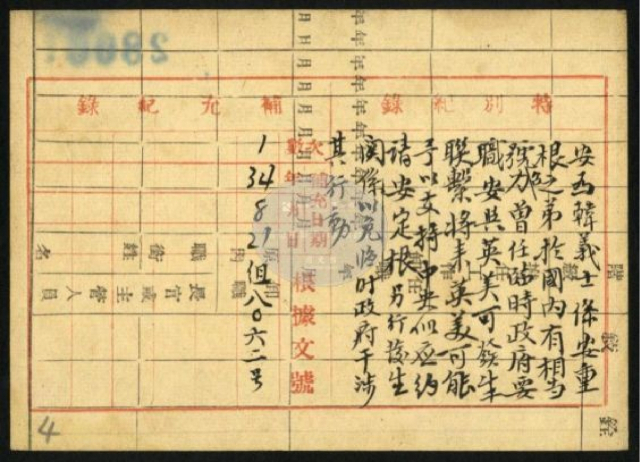 特別紀錄
安为韓義士係安重
根之弟於國内有相当
號召力曾任臨時政府要
職安与英美可發生
聯繫將来英美可能
予以支持中央似应約
請安定根另行發生
関係以免臨时政府干涉
其行動
補充紀錄
次數
補充日期
年月日
根據文號
1
34
8
21
八〇六二号
長官或主管人員
職銜姓名
4